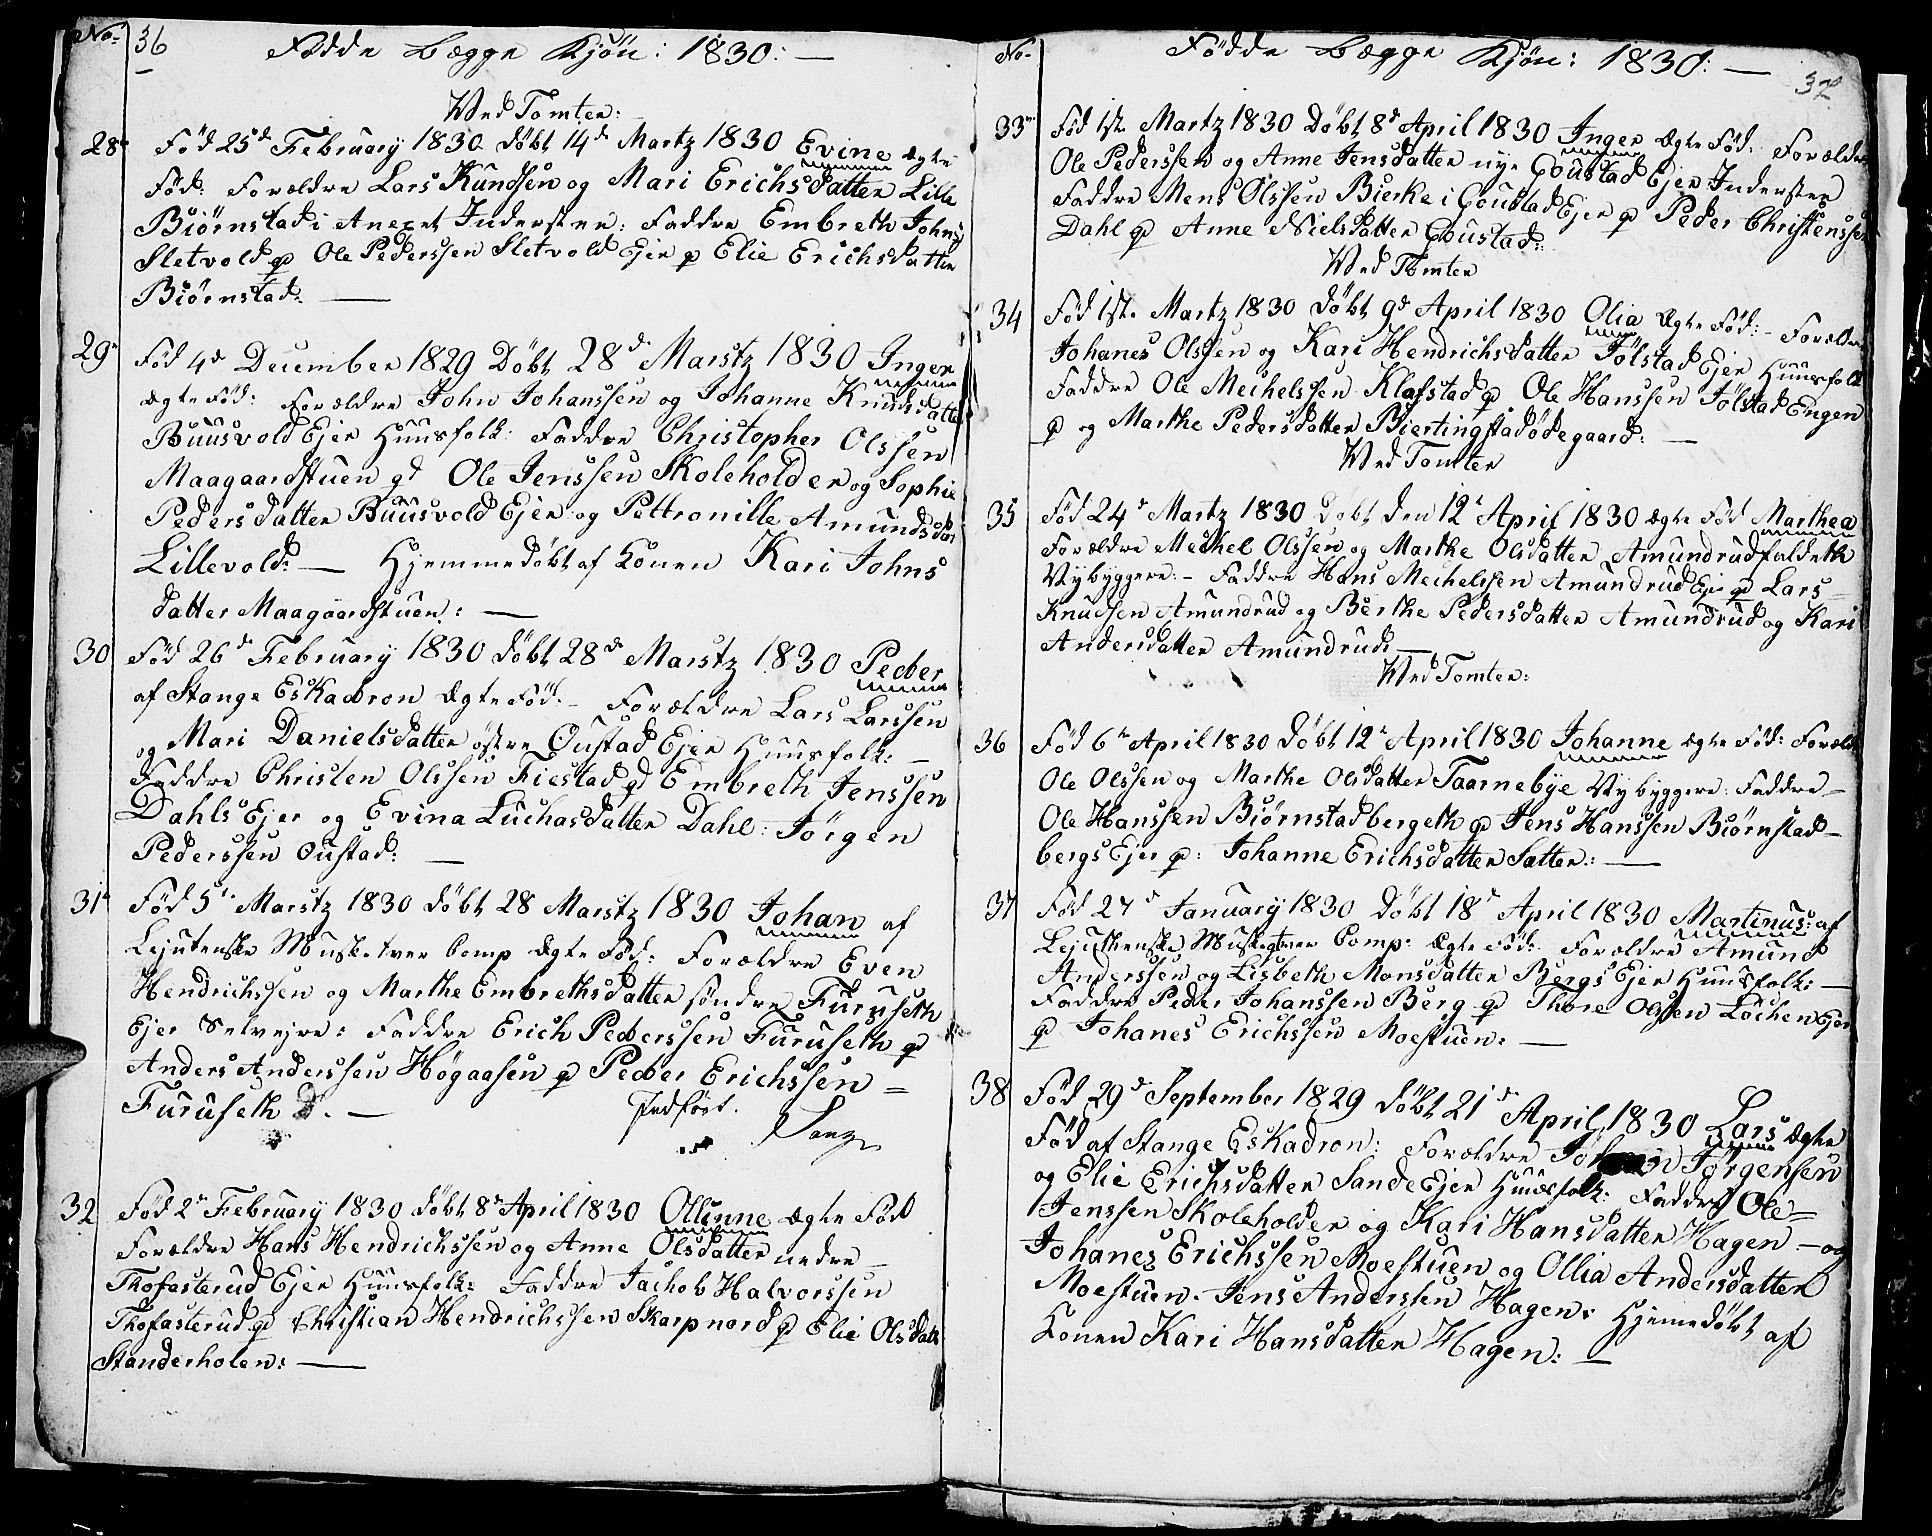 No: 36 Fødde begge Kjøn: 1830: —
Ved Tomter:
28 Fød 25d February 1830 døbt 14d Martz 1830 Evine ægte
Fød: Forældre Lars Kundsen og Mari Erichsdatter Lille
Biørnstad i Anexet Inderster: Faddre Embreth Johns
Sletvold p Ole Pederssen Sletvold Ejer p Elie Erichsdatter
Biørnstad: —
29 Fød 4d December 1829 Døbt 28d Marstz 1830 Inger
ægte Fød: Forældre John Johanssen og Johanne Knudsdatter
Buusvold Ejer Huusfolk: Faddre Christopher Olssen
Maagaardstuen Ole Jenssen Skoleholder og Sophie
Pedersdatter Buusvold Ejer og Pettronille Amundsdatr
Lillevold: — Hjemmedøbt af Konen Kari Johns
datter Maagaardstuen: —
30 Fød 26d February 1830 døbt 28d Marstz 1830 Peder
af Stange Eskadron Ægte Fød: — Forældre Lars Larssen
og Mari Danielsdatter østre Oustad Ejer Huusfolk: —
Faddre Christen Olssen Fiestad Embreth Jenssen
Dahls Ejer og Evina Luchasdatter Dahl: Jörgen
Pederssen Oustad: —
31 Fød 5t Marstz 1830 døbt 28 Marstz 1830 Johan af
Lejutenske Musketeer Comp Ægte Fød: Forældre Even
Hendrichssen og Marthe Embrethsdatter søndre Furuseth
Ejer Selvejre: Faddre Erich Pederssen Furuseth p
Anders Anderssen Høgaasen p Peder Erichssen =
Furuseth d. — Indført.
32 Fød 2d February 1830 døbt 8d April 1830 Ollinne ægte Fød
Forældre Hans Hendrichssen og Anne Olsdatter nedre —
Thofasterud Ejer Huusfolk: Faddre Jachob Halvorssen
Thofasterud p Christian Hendrichssen Skarpnord p Elie Olsdatt
Standerholen: —
No: Fødde begge Kjøn: 1830: — 37
33 Fød 1st. Martz 1830 Døbt 8d April 1830 Inger Ægte Fød: Forældre
Ole Pederssen og Anne Jensdatter nye Goustad Ejer Inderster
Faddre Mens Olssen Bierke i Goustad Ejer p Peder Christenssen
Dahl p Anne Nielsdatter Goustad:
Ved Tomter
34 Fød 1st. Martz 1830 døbt 9d April 1830 Olia Ægte Fød: — Forældre
Johanes Olssen og Kari Hendrichsdatter Jølstad Ejer Huusfolk
Faddre Ole Meichelssen Klafstad p Ole Hanssen Jölstad Engen
p og Marthe Pedersdatter Biertingstadødegaard: —
Ved Tomter
35 Fød 24d Martz 1830 Døbt den 12t April 1830 ægte Fød Marthea
Forældre Meichel Olssen og Marthe Olsdatter Amundrudfaldeth
Nybyggere: — Faddre Hans Meichelssen Amundrud Ejer p Lars
Knudsen Amundrud og Berthe Pedersdatter Amundrud og Kari
Andersdatter Amundrud: —
Ved Tomter:
36 Fød 6te April 1830 Døbt 12t April 1830 Johanne ægte Fød: Foræld
Ole Olssen og Marthe Olsdatter Taarnebye Nybyggere: Faddre —
Ole Hanssen Biørnstadbergeth p Jens Hanssen Biørnstad—
bergs Ejer p: Johanne Erichsdatter Sætter: —
37 Fød 27d January 1830 Døbt 18d April 1830 Martinus: af
Lejuthenske Musketeer Comp: Ægte Fød: Forældre Amund
Anderssen og Lisbeth Monsdatter Bergs Ejer Huusfolk: —
Faddre Peder Johanssen Berg p Thore Olssen Løchen Ejer
p Johanes Erichssen Moestuen: —
38 Fød 29d September 1829 døbt 21d April 1830 Lars Ægte
Fød af Stange Eskadron: Forældre Jörgensen
og Elie Erichsdatter Sande Ejer Huusfolk: Faddre Ole=
Jenssen Skoleholder og Kari Hansdatter Hagen — og
Johanes Erichssen Moestuen og Ollia Andersdatter
Moestuen. Jens Anderssen Hagen: Hjemedøbt af
Konen Kari Hansdatter Hagen: —